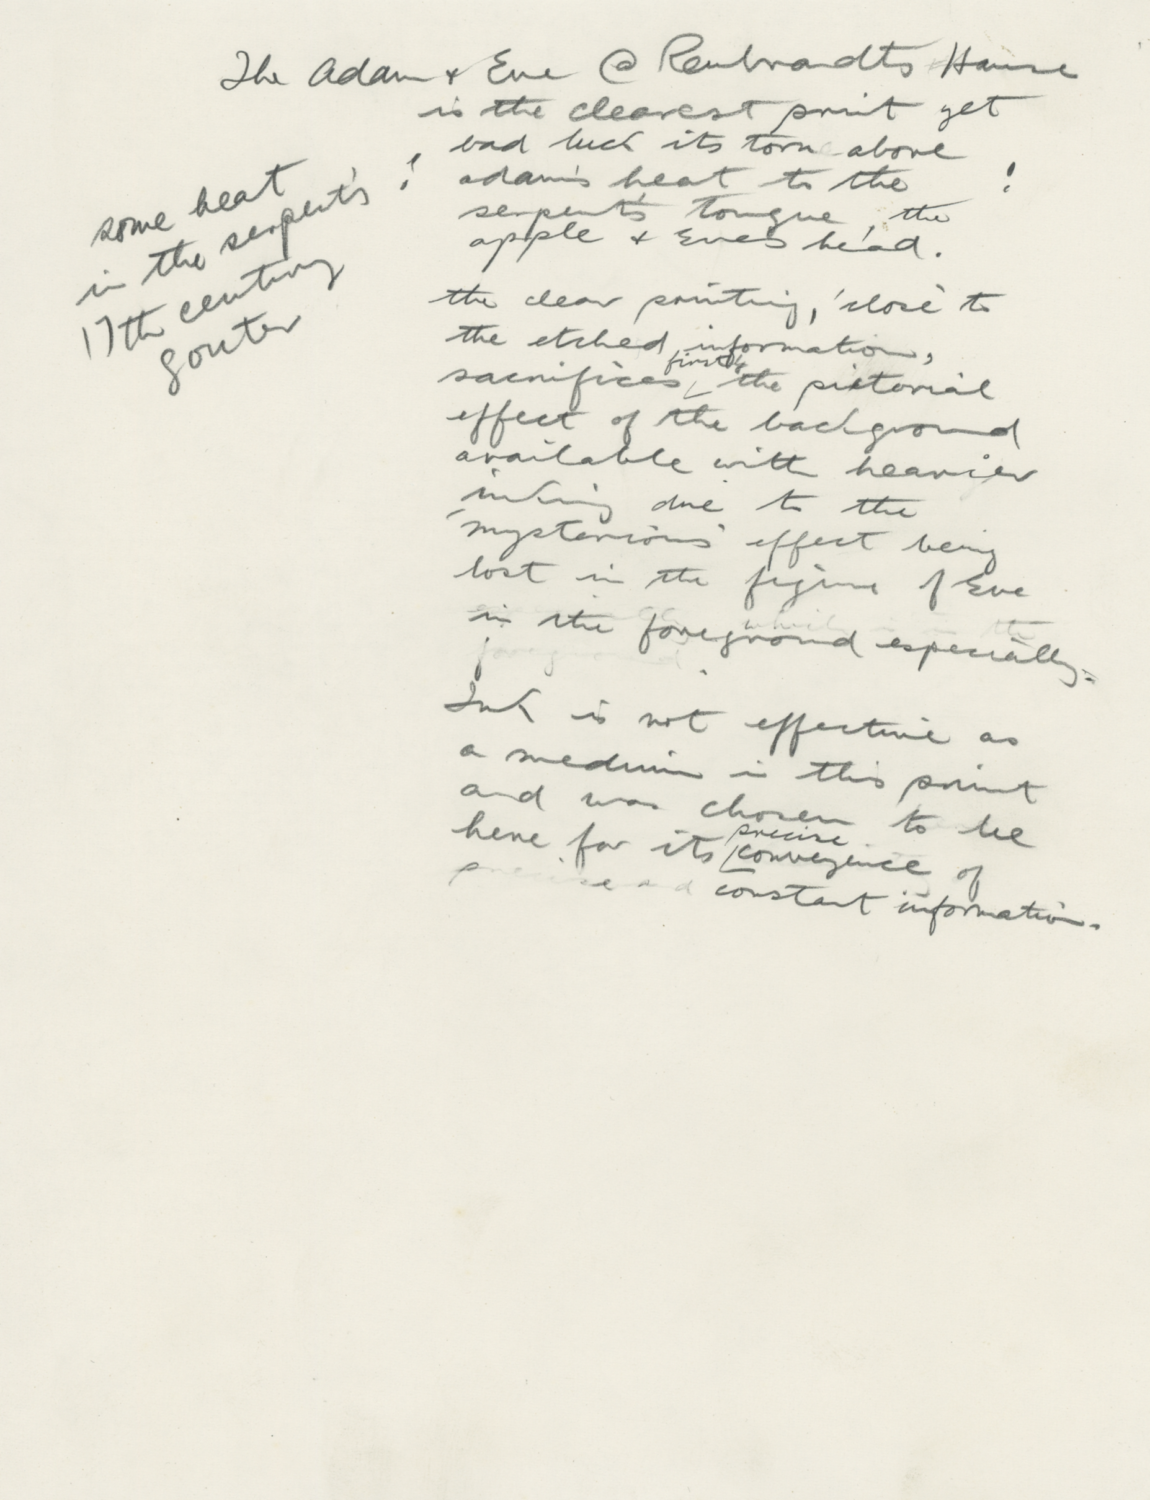 The Adam + Eve @ Rembrandts House
is the clearest print yet
bad luck its torn above
adam's heat to the !
serpent's tongue, the
apple + Eve's head.
some heat
in the serpent's !
17th century
gouter
the clear printing, 'close' to
the etched information,
sacrifices firstly the pictorial
effect of the background
available with heavier
inking due to the
'mysterious' effect being
lost in the figure of Eve
in the foreground especially.
Ink is not effective as
a medium in this print
and was chosen to be
here for its precise convergence of
constant information.